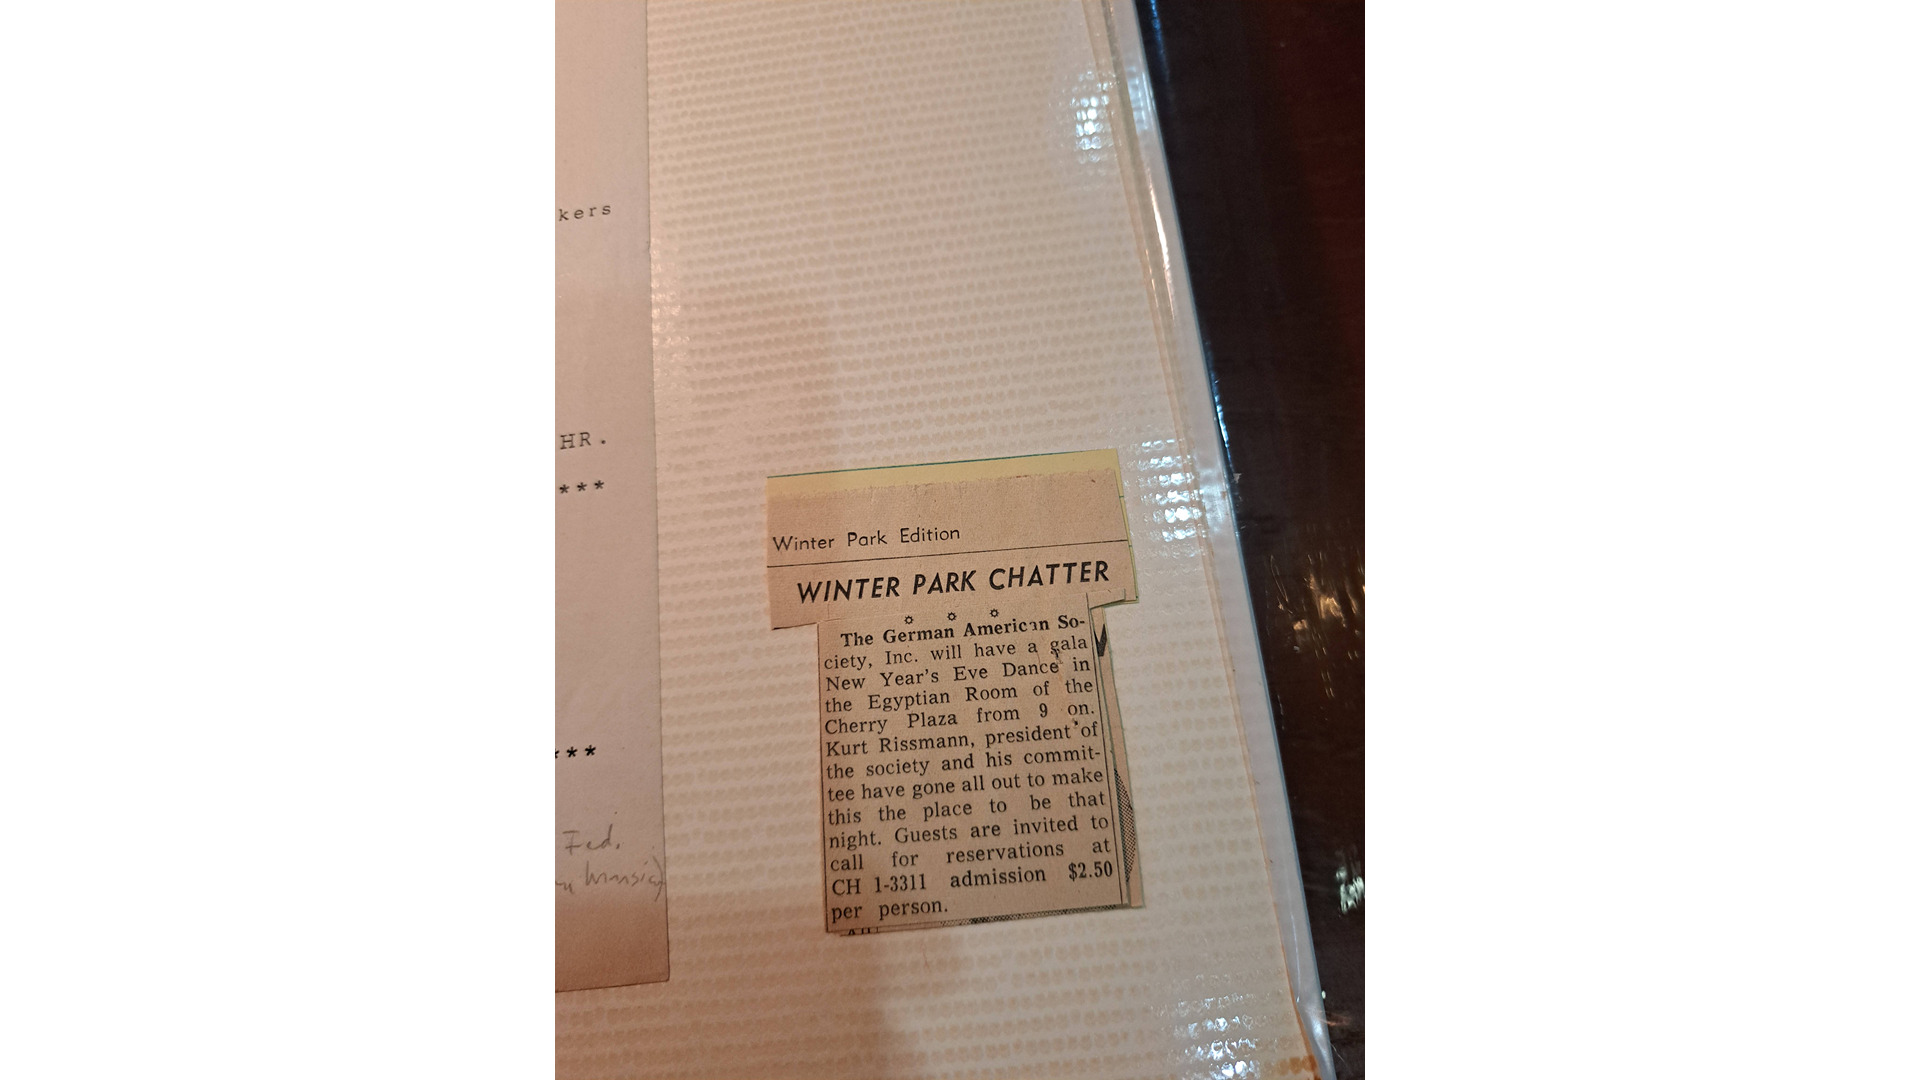 kers
HR.
***
***
Fed.
Winter Park Edition
WINTER PARK CHATTER
The German American So-
ciety, Inc. will have a gala
New Year's Eve Dance in
the Egyptian Room of the
Cherry Plaza from 9 on.
Kurt Rissmann, president of
the society and his commit-
tee have gone all out to make
this the place to be that
night. Guests are invited to
call for reservations at
CH 1-3311 admission $2.50
per person.